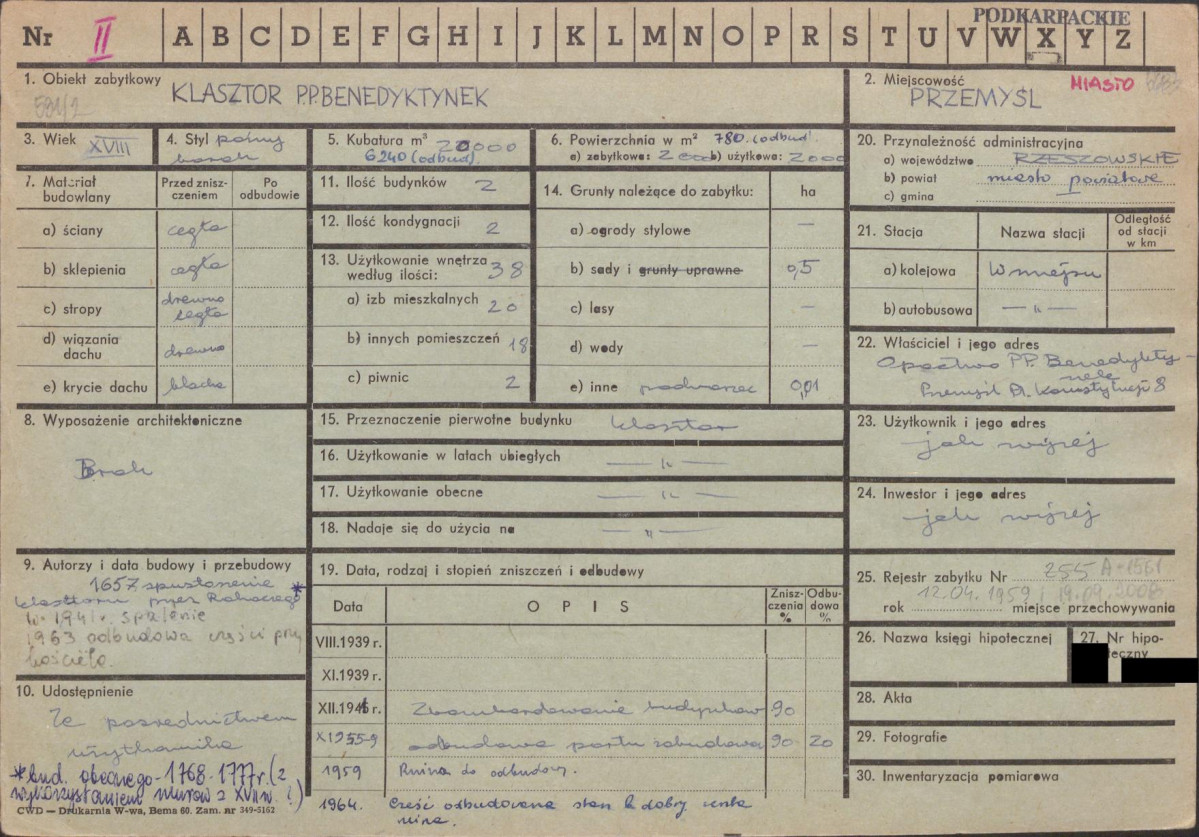 PODKARPACKIE
Nr II A B C D E F G H I J K L M N O P R S T U V W X Y Z
1. Obiekt zabytkowy
591/2
KLASZTOR P.P. BENEDYKTYNEK
2. Miejscowość MIASTO
PRZEMYŚL
3. Wiek XVIII
4. Styl późny
barok
5. Kubatura m³ 20000
6240 (odbud).
6. Powierzchnia w m² 780. (odbud).
a) zabytkowe: 2000 b) użytkowe: 2000
7. Materiał budowlany
Przed zniszczeniem
Po odbudowie
a) ściany cegła
b) sklepienia cegła
c) stropy drewno
cegła
d) wiązania dachu drewno
e) krycie dachu blacha
8. Wyposażenie architektoniczne
Brak
9. Autorzy i data budowy i przebudowy
1657 spustoszenie *
klasztoru przez Rakoczego
w 1941 r. spalenie
1963 odbudowa części przy
kościele.
10. Udostępnienie
Za pośrednictwem
użytkownika
* bud. obecnego - 1768-1777 r. (z
wykorzystaniem murów z XVII w. ?)
CWD — Drukarnia W-wa, Bema 60. Zam. nr 349-5162
11. Ilość budynków 2
12. Ilość kondygnacji 2
13. Użytkowanie wnętrza według ilości: 38
a) izb mieszkalnych 20
b) innych pomieszczeń 18
c) piwnic 2
14. Grunty należące do zabytku: ha
a) ogrody stylowe —
b) sady i grunty uprawne 0,5
c) lasy —
d) wody —
e) inne podworzec 0,01
15. Przeznaczenie pierwotne budynku klasztor
16. Użytkowanie w latach ubiegłych — " —
17. Użytkowanie obecne — " —
18. Nadaje się do użycia na — " —
19. Data, rodzaj i stopień zniszczeń i odbudowy
Data O P I S Zniszczenia % Odbudowa %
VIII.1939 r.
XI.1939 r.
XII.1941 r. Zbombardowanie budynków 90
X 1955-9 odbudowa partu zabudowań 90 20
1959 Ruina do odbudowy.
1964. Część odbudowana stan b. dobry reszta
ruina.
20. Przynależność administracyjna
a) województwo RZESZOWSKIE
b) powiat miasto powiatowe
c) gmina
21. Stacja Nazwa stacji Odległość od stacji w km
a) kolejowa W miejscu
b) autobusowa — " —
22. Właściciel i jego adres
Opactwo PP. Benedykty-
nek
Przemyśl Pl. Konstytucji 8
23. Użytkownik i jego adres
jak wyżej
24. Inwestor i jego adres
jak wyżej
25. Rejestr zabytku Nr 255 A-1561
12.04.1959 i 19.09.2008
rok miejsce przechowywania
26. Nazwa księgi hipotecznej
27. Nr hipoteczny
28. Akta
29. Fotografie
30. Inwentaryzacja pomiarowa